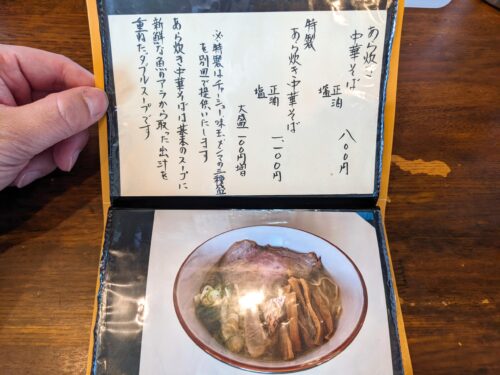 あら炊き
中華そば
正油
塩
八〇〇円
特製
あら炊き中華そば
正油
塩
一、一〇〇円
大盛一〇〇円増
※特製はチャーシュー味玉メンマの三種盛
を別皿で提供いたします
あら炊き中華そばは基本のスープに
新鮮な魚のアラから取った出汁を
重ねたダブルスープです